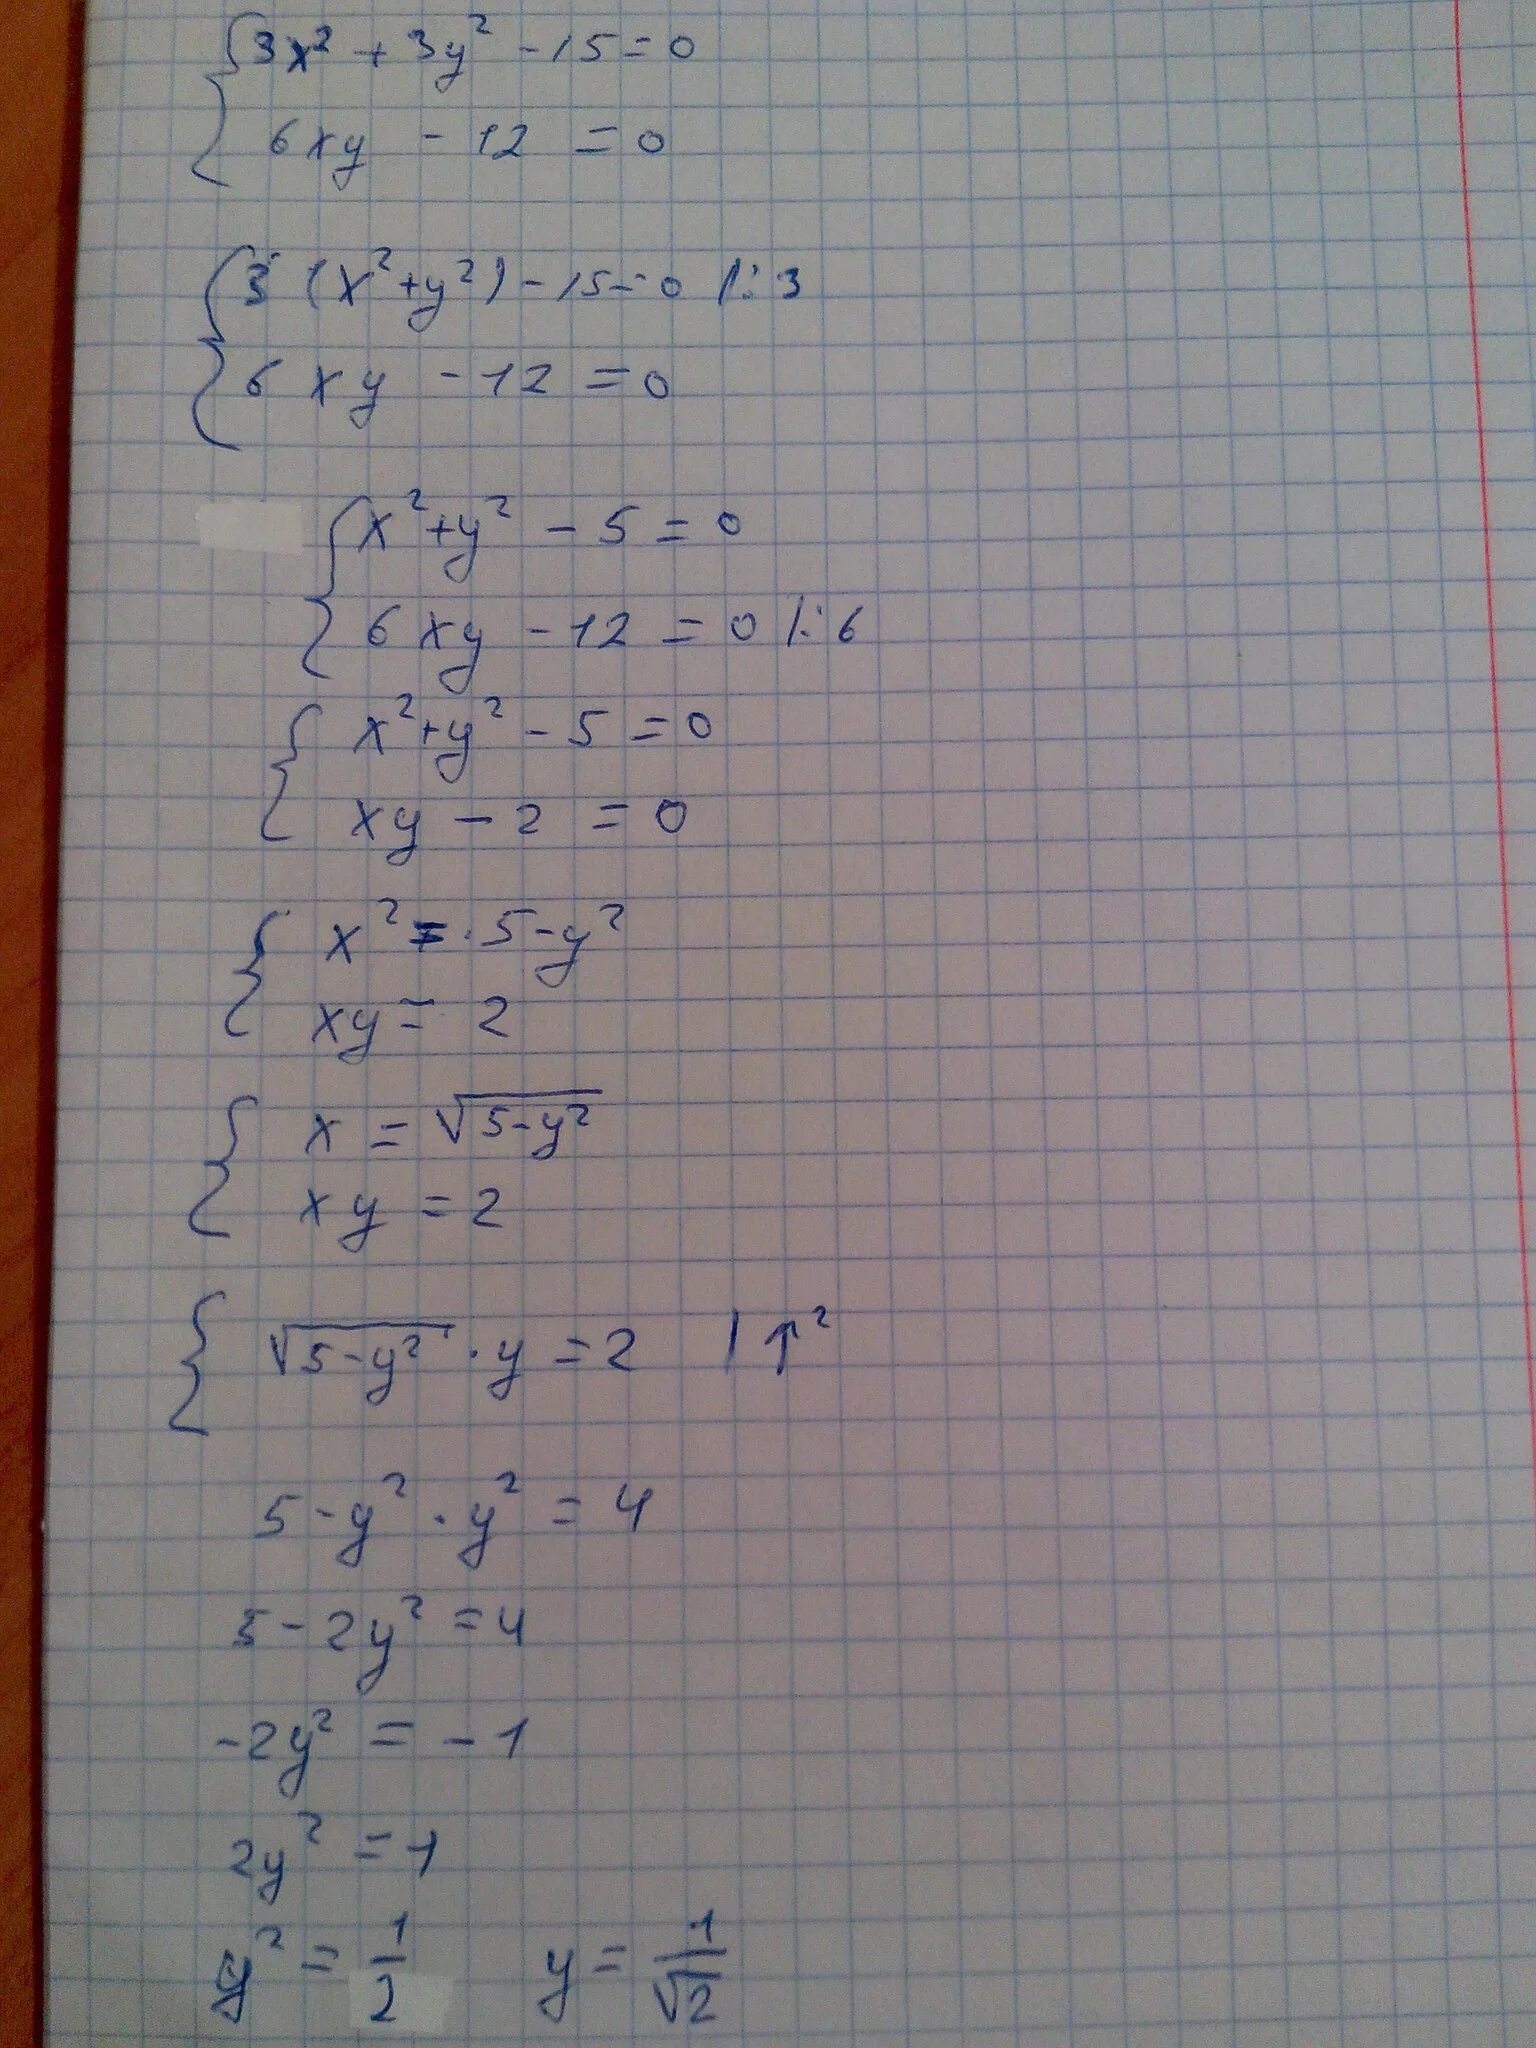 3x² + 3y² - 15 = 0
6xy - 12 = 0
3 (x² + y²) - 15 = 0 |: 3
6 xy - 12 = 0
x² + y² - 5 = 0
6 xy - 12 = 0 |: 6
x² + y² - 5 = 0
xy - 2 = 0
x² = 5 - y²
xy = 2
x = √(5-y²)
xy = 2
√(5-y²) · y = 2 | ↑²
5 - y² · y² = 4
5 - 2y² = 4
-2y² = -1
2y² = 1
y² = 1/2 y = 1/√2